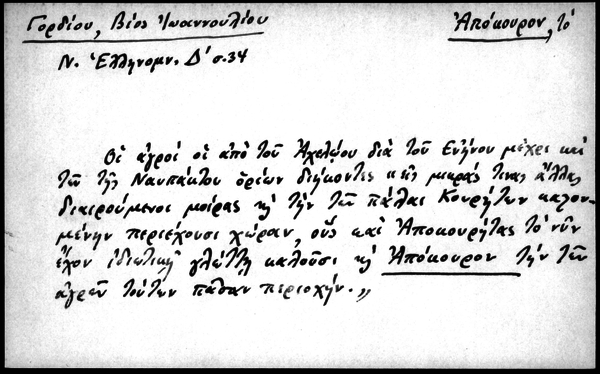 Γορδίου, Βίος Ἰωαννουλίου
Ἀπόκουρον, τό
Ν. Ἑλληνομν. Δ΄ σ. 34
Οἱ ἀγροὶ οἱ ἀπὸ τοῦ Ἀχελῴου διὰ τοῦ Εὐήνου μέχρι καὶ
τῶν τῆς Ναυπάκτου ὁρίων διήκοντες κ εἰς μικράς τινας ἄλλας
διαιρούμενοι μοίρας κ τὴν τῶν πάλαι Κουρήτων καλου-
μένην περιέχουσι χώραν, οὓς καὶ Ἀποκουρήτας τὸ νῦν
ἔχον ἰδιωτικῇ γλώττῃ καλοῦσι κ Ἀπόκουρον τὴν τῶν
ἀγρῶν τούτων πᾶσαν περιοχήν.»